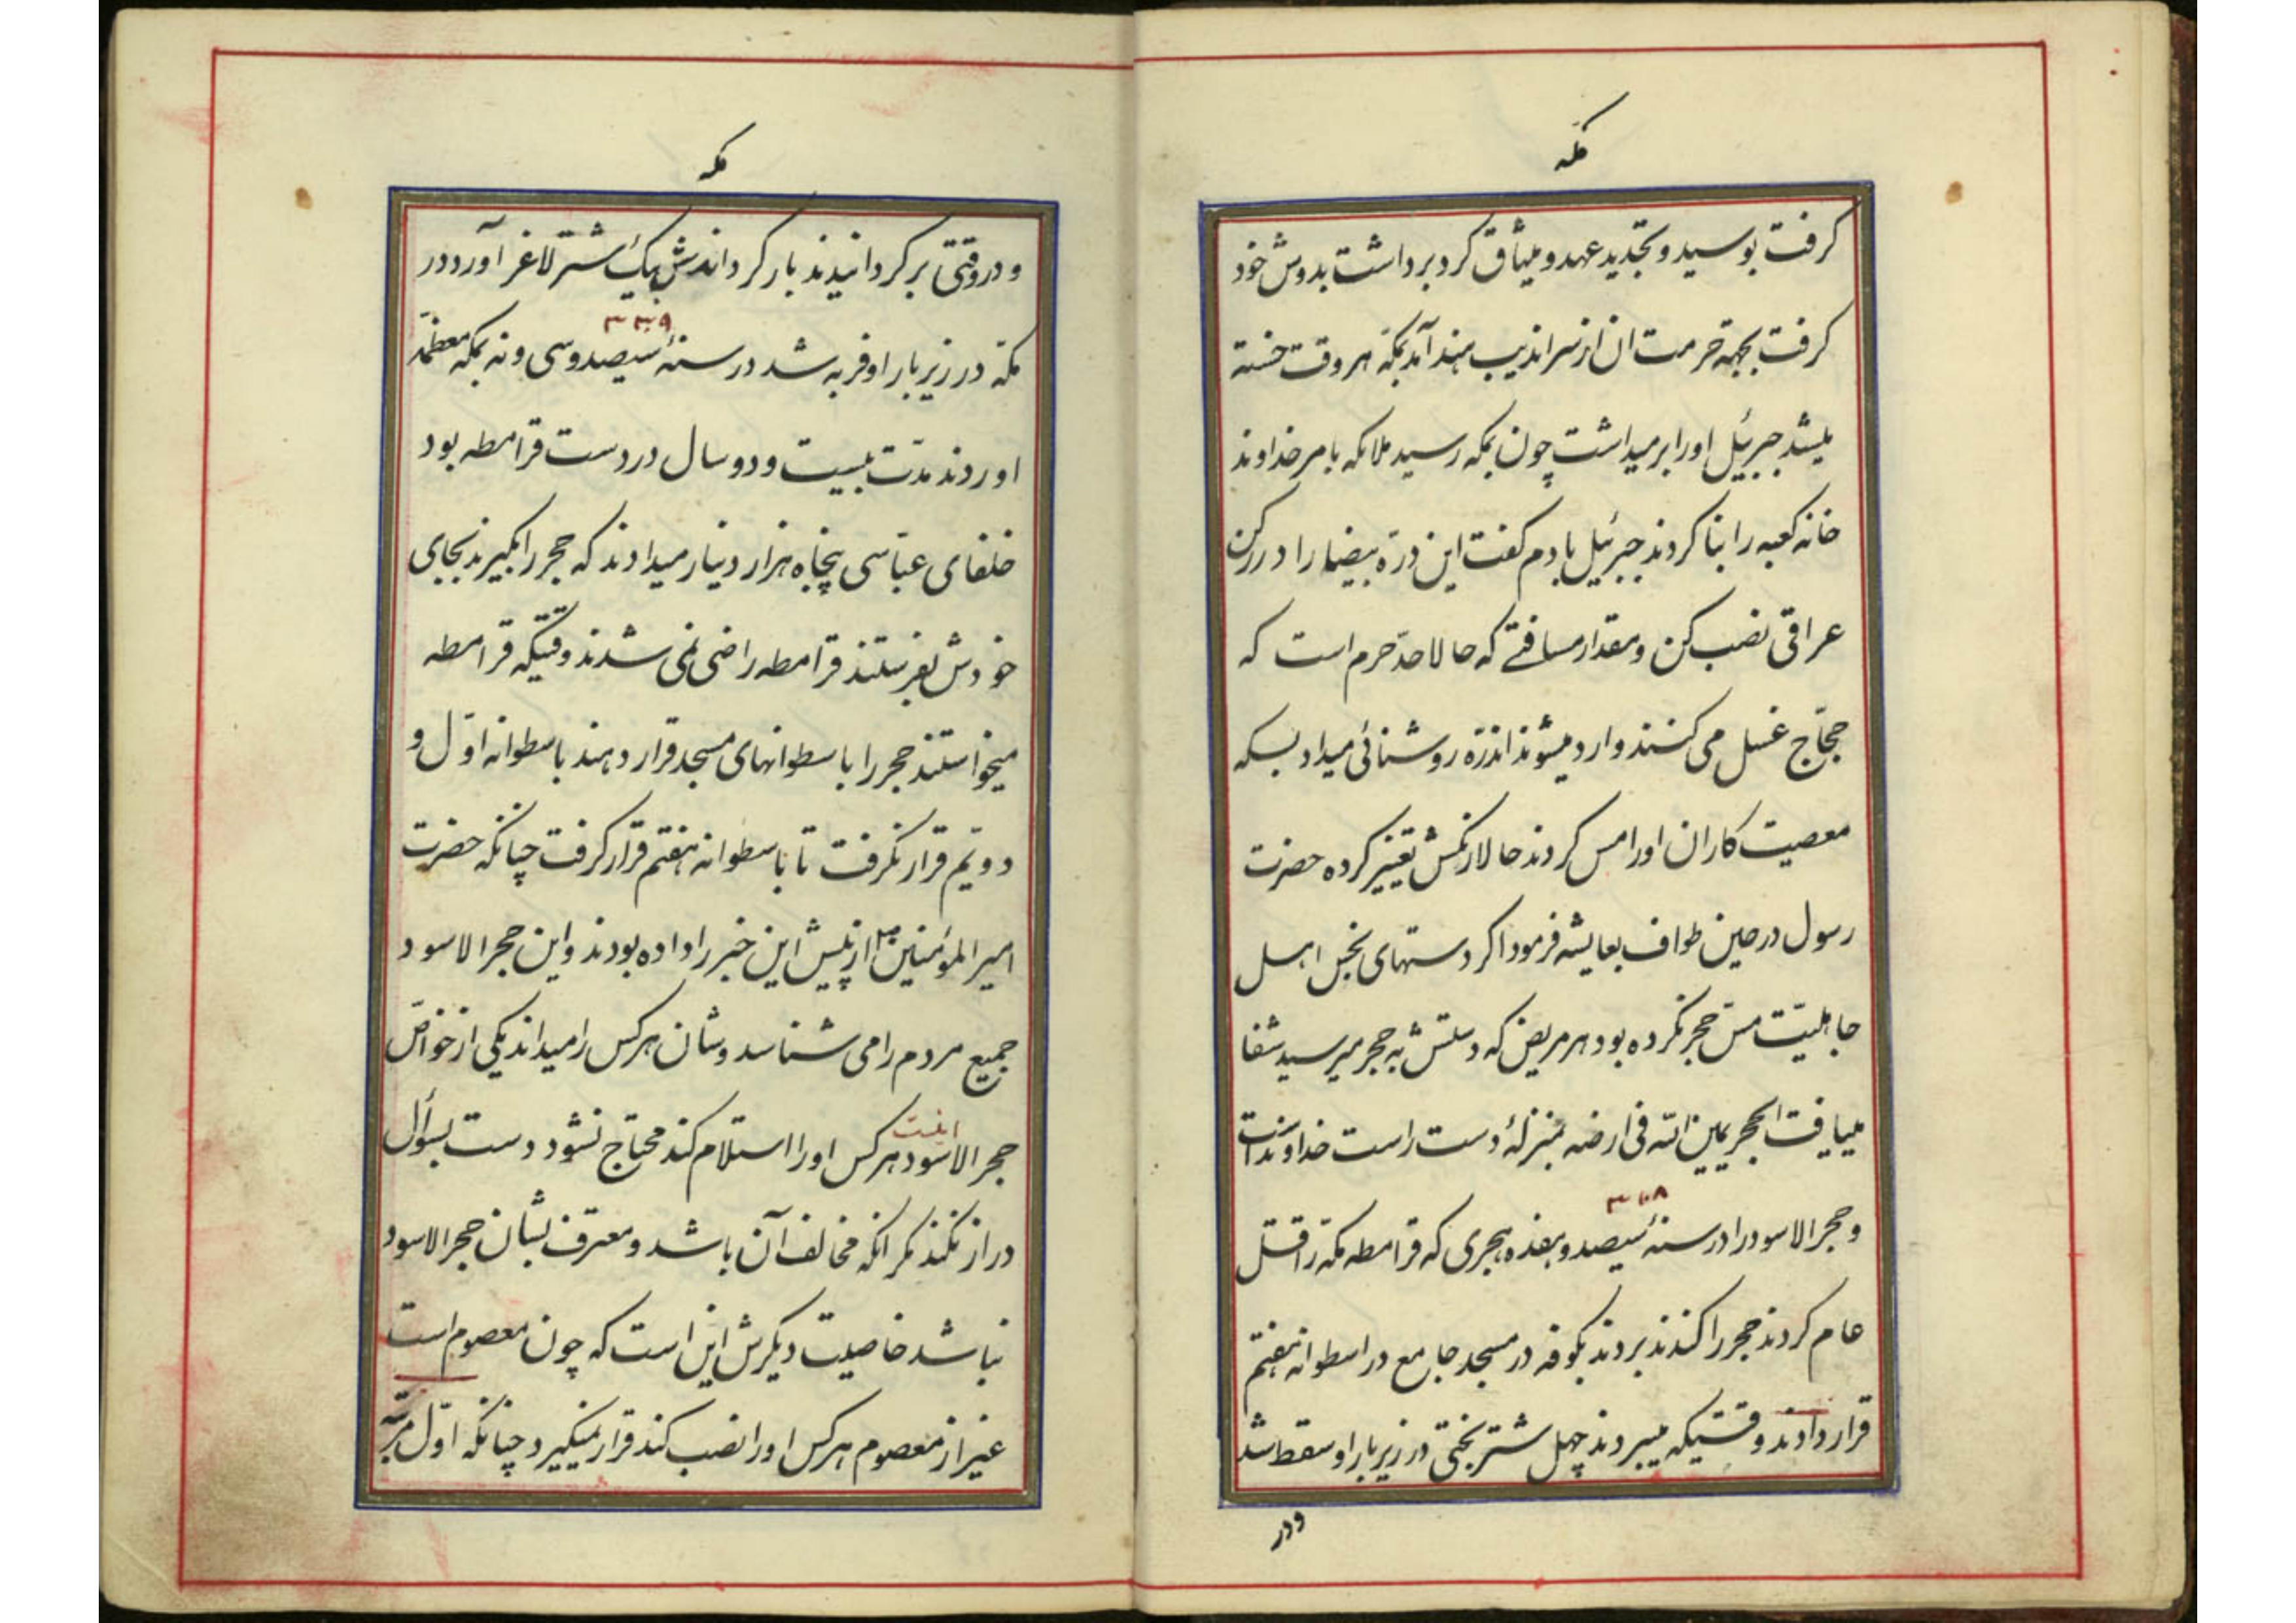 مکه
کرفت بوسید و تجدید عهد و میثاق کرد برداشت بدوش خود
کرفت بجهة حرمت ان از سراندیب هند آمد بمکّه هر وقت خسته
میشد جبرئیل او را بر میداشت چون بمکه رسید ملائکه بامر خداوند
خانه کعبه را بنا کردند جبرئیل بادم کفت این درّه بیضا را در رکن
عراقی نصب کن و مقدار مسافتے که حالا حدّ حرم است که
حجّاج غسل می کنند وارد میشوند اندرّه روشنائی میداد بسکه
معصیت کاران او را مس کردند حالا رنکش تغییر کرده حضرت
رسول در حین طواف بعایشه فرمود اکر دستهای نجس اهل
جاهلیّت مسّ حجر نکرده بود هر مریض که دستش به حجر میرسید شفا
مییافت الحجر یمین الله فی ارضه بمنزلهٔ دست راست خداوند است
۳۱۷
و حجر الاسود را در سنهٔ سیصد و هفده هجری که قرامطه مکّه را قتل
عام کردند حجر را کندند بردند بکوفه در مسجد جامع در اسطوانه هفتم
قرار دادند وقتیکه میبردند چهل شتر بختی در زیر بار او سقط شد
و در
مکه
و در وقتی بر کردانیدند بار کرداندش بیک شتر لاغر آورد در
۳۳۹
مکّه در زیر بار او فربه شد در سنهٔ سیصد و سی و نه بمکه معظمّه
اوردند مدّت بیست و دو سال در دست قرامطه بود
خلفای عبّاسی پنجاه هزار دینار میدادند که حجر را بکیرند بجای
خودش بفرستند قرامطه راضی نمی شدند وقتیکه قرامطه
میخواستند حجر را باسطوانهای مسجد قرار دهند باسطوانه اوّل و
دویّم قرار نکرفت تا باسطوانه هفتم قرار کرفت چنانکه حضرت
امیر المؤمنین ع از پیش این خبر را داده بودند و این حجر الاسود
جمیع مردم را می شناسد و شان هر کس را میداند یکی از خواصّ
اینست
حجر الاسود هر کس او را استلام کند محتاج نشود دست بسؤال
دراز نکند مکر انکه مخالف آن باشد و معترف بشان حجر الاسود
نباشد خاصیت دیکرش این است که چون معصوم است
غیر از معصوم هر کس او را نصب کند قرار نمیکیرد چنانکه اوّل مرتبه